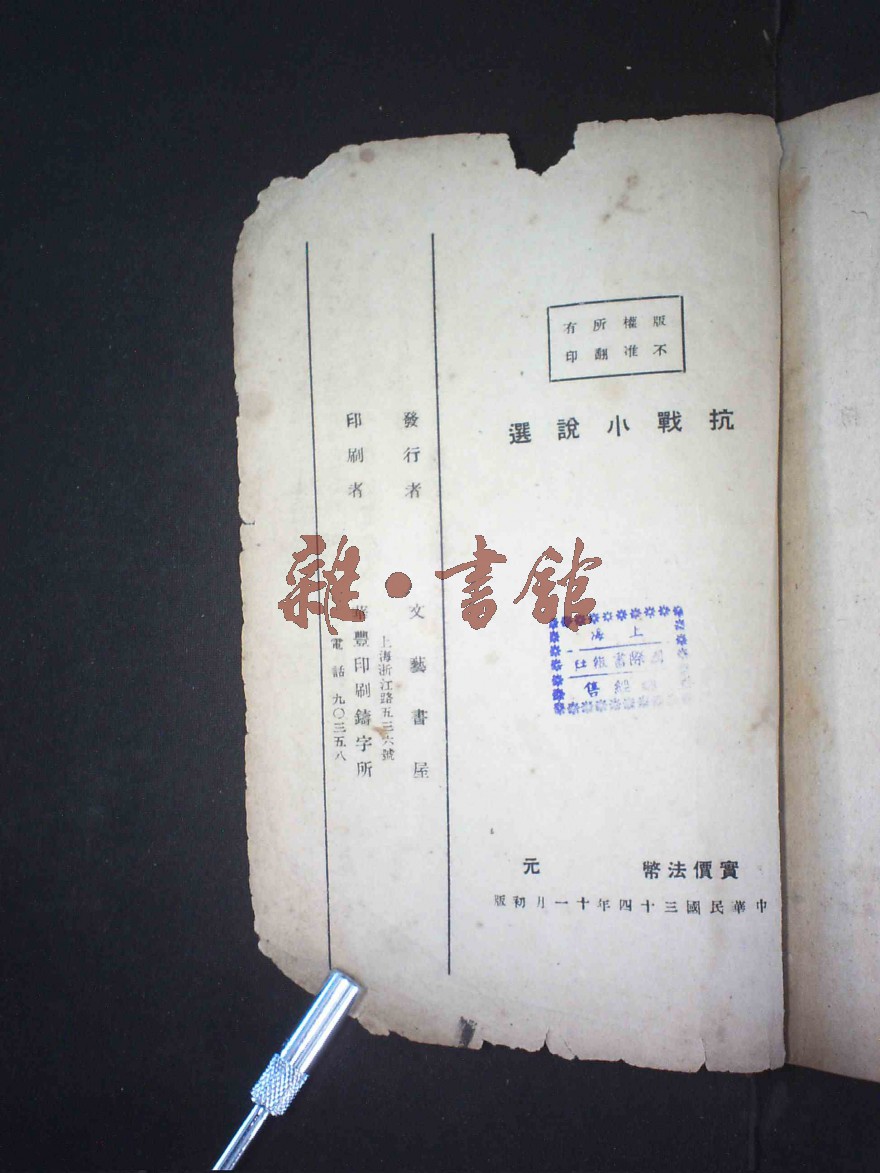 版權所有
不准翻印
抗戰小說選
上海
書報社
售
實價法幣 元
中華民國三十四年十一月初版
發行者 文藝書屋
上海浙江路五三六號
印刷者 華豐印刷鑄字所
電話 九〇三五八
雜·書館